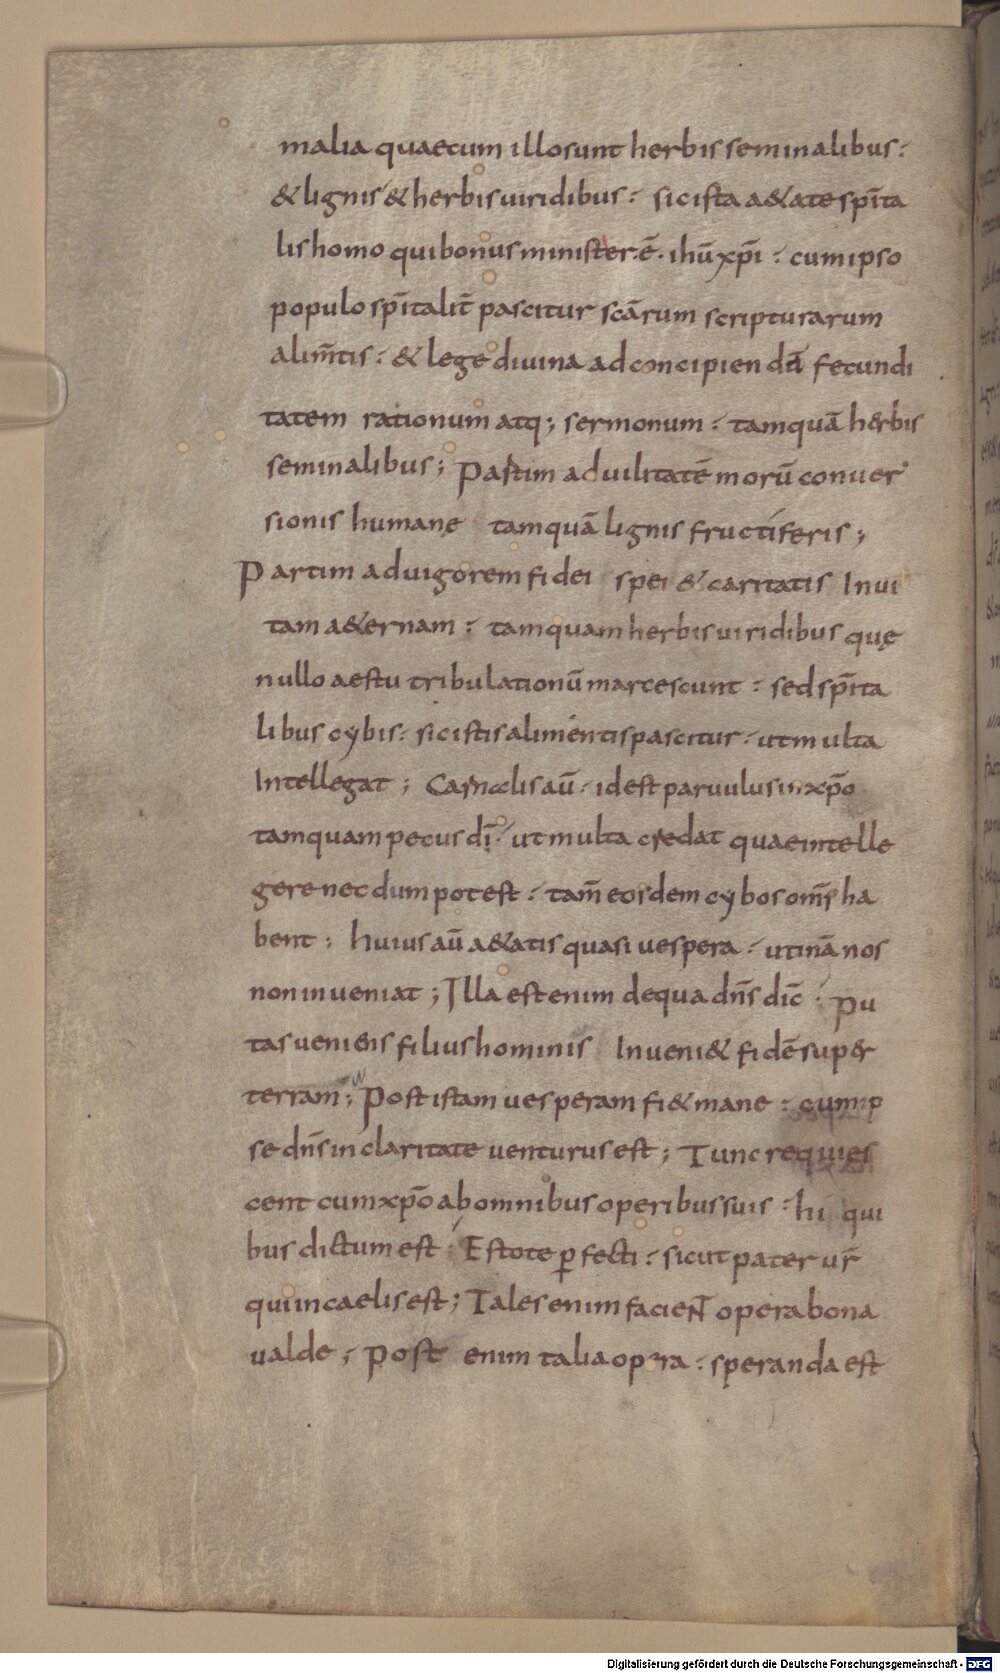 malia quaecum illosunt herbis seminalibus:
& lignis & herbis uiridibus: sicista a&ate sp̄ita
lis homo qui bonus minister.ē. ihū xp̄i: cum ipso
populo sp̄italit̄ pascitur scārum scripturarum
alim̄tis: & lege diuina ad concipiendā fecundi
tatem rationum atq; sermonum: tamquā herbis
seminalibus; Partim ad uilitatē morū conuer
sionis humanę tamquā lignis fructiferis;
Partim ad uigorem fidei spei & caritatis In ui
tam a&ernam: tamquam herbis uiridibus quę
nullo aestu tribulationū marcescunt: sed sp̄ita
libus cybis: sic istis alimentis pascitur: ut multa
Intellegat; Carnalis aū: id est paruulus in xp̄o
tamquam pecus dī: ut multa credat quae intelle
gere necdum potest: tam̄ eosdem cybos om̄s ha
bent: huius aū a&atis quasi uespera: utinā nos
non inueniat; Illa est enim de qua dn̄s dic̄: Pu
tas ueniens filius hominis Inueni& fidē super
terram; Post istam uesperam fi& mane: cum ip
se dn̄s in claritate uenturus est; Tunc requies
cent cum xp̄o ab omnibus operibus suis: hi qui
bus dictum est: Estote ꝑfecti: sicut pater ur̄
qui in caelis est; Tales enim facient opera bona
ualde; Post enim talia opera: speranda est
Digitalisierung gefördert durch die Deutsche Forschungsgemeinschaft - DFG